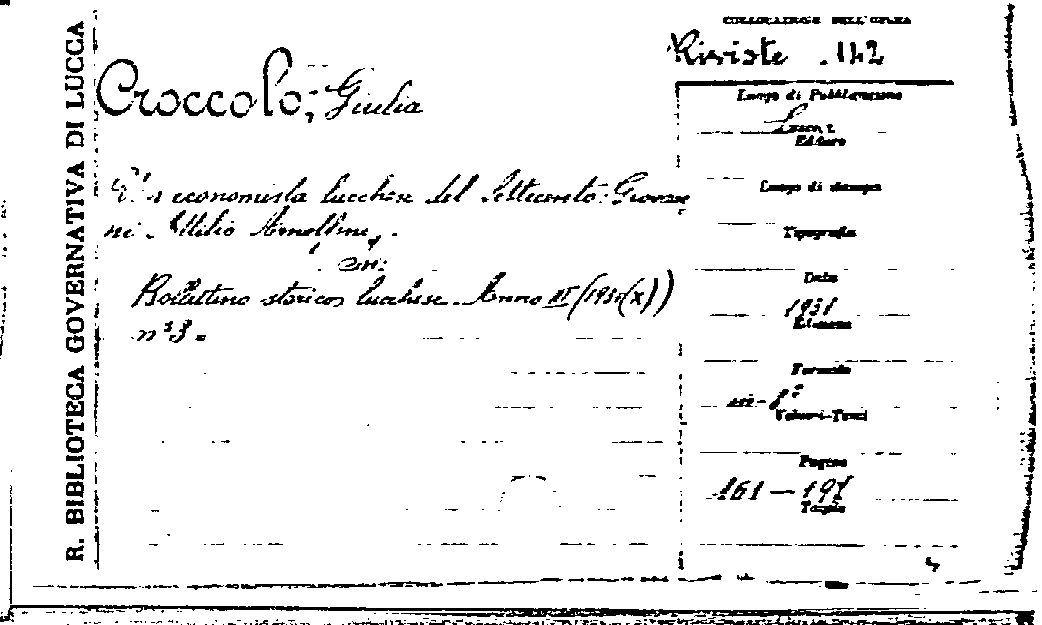 R. BIBLIOTECA GOVERNATIVA DI LUCCA
COLLOCAZIONE DELL'OPERA
Riviste . 142
Croccolo, Giulia
Un economista lucchese del Settecento: Giovan
ni Attilio Arnolfini.
in:
Bollettino storico lucchese. Anno (1931(X))
n° 3.
Luogo di Pubblicazione
Lucca
Editore
Luogo di stampa
Tipografia
Data
1931
Edizione
Formato
in-8°
Volumi-Tomi
Pagine
161-19
Tavole